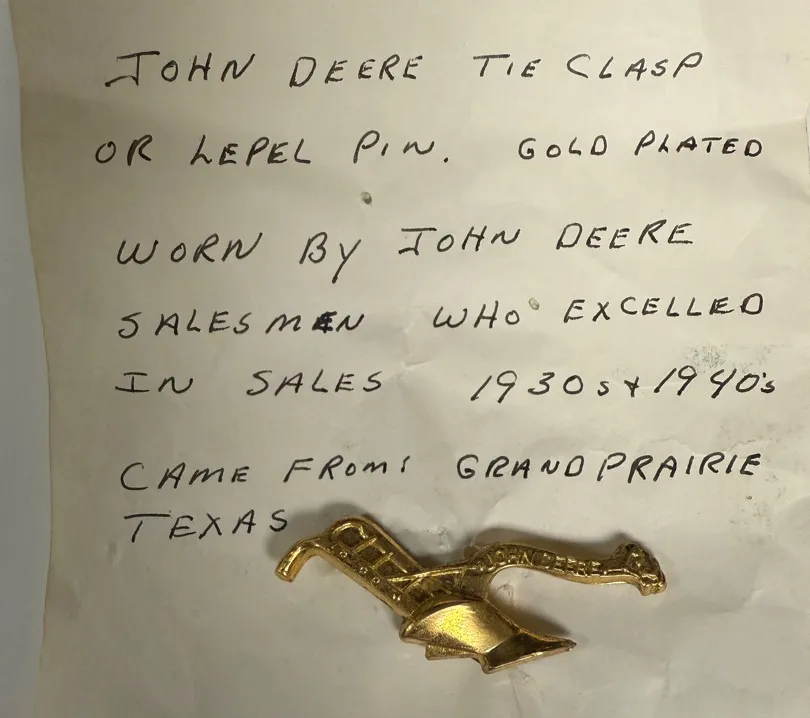 JOHN DEERE TIE CLASP
OR LEPEL PIN. GOLD PLATED
WORN BY JOHN DEERE
SALESMEN WHO EXCELLED
IN SALES 1930s & 1940's
CAME FROM: GRAND PRAIRIE
TEXAS
JOHN DEERE